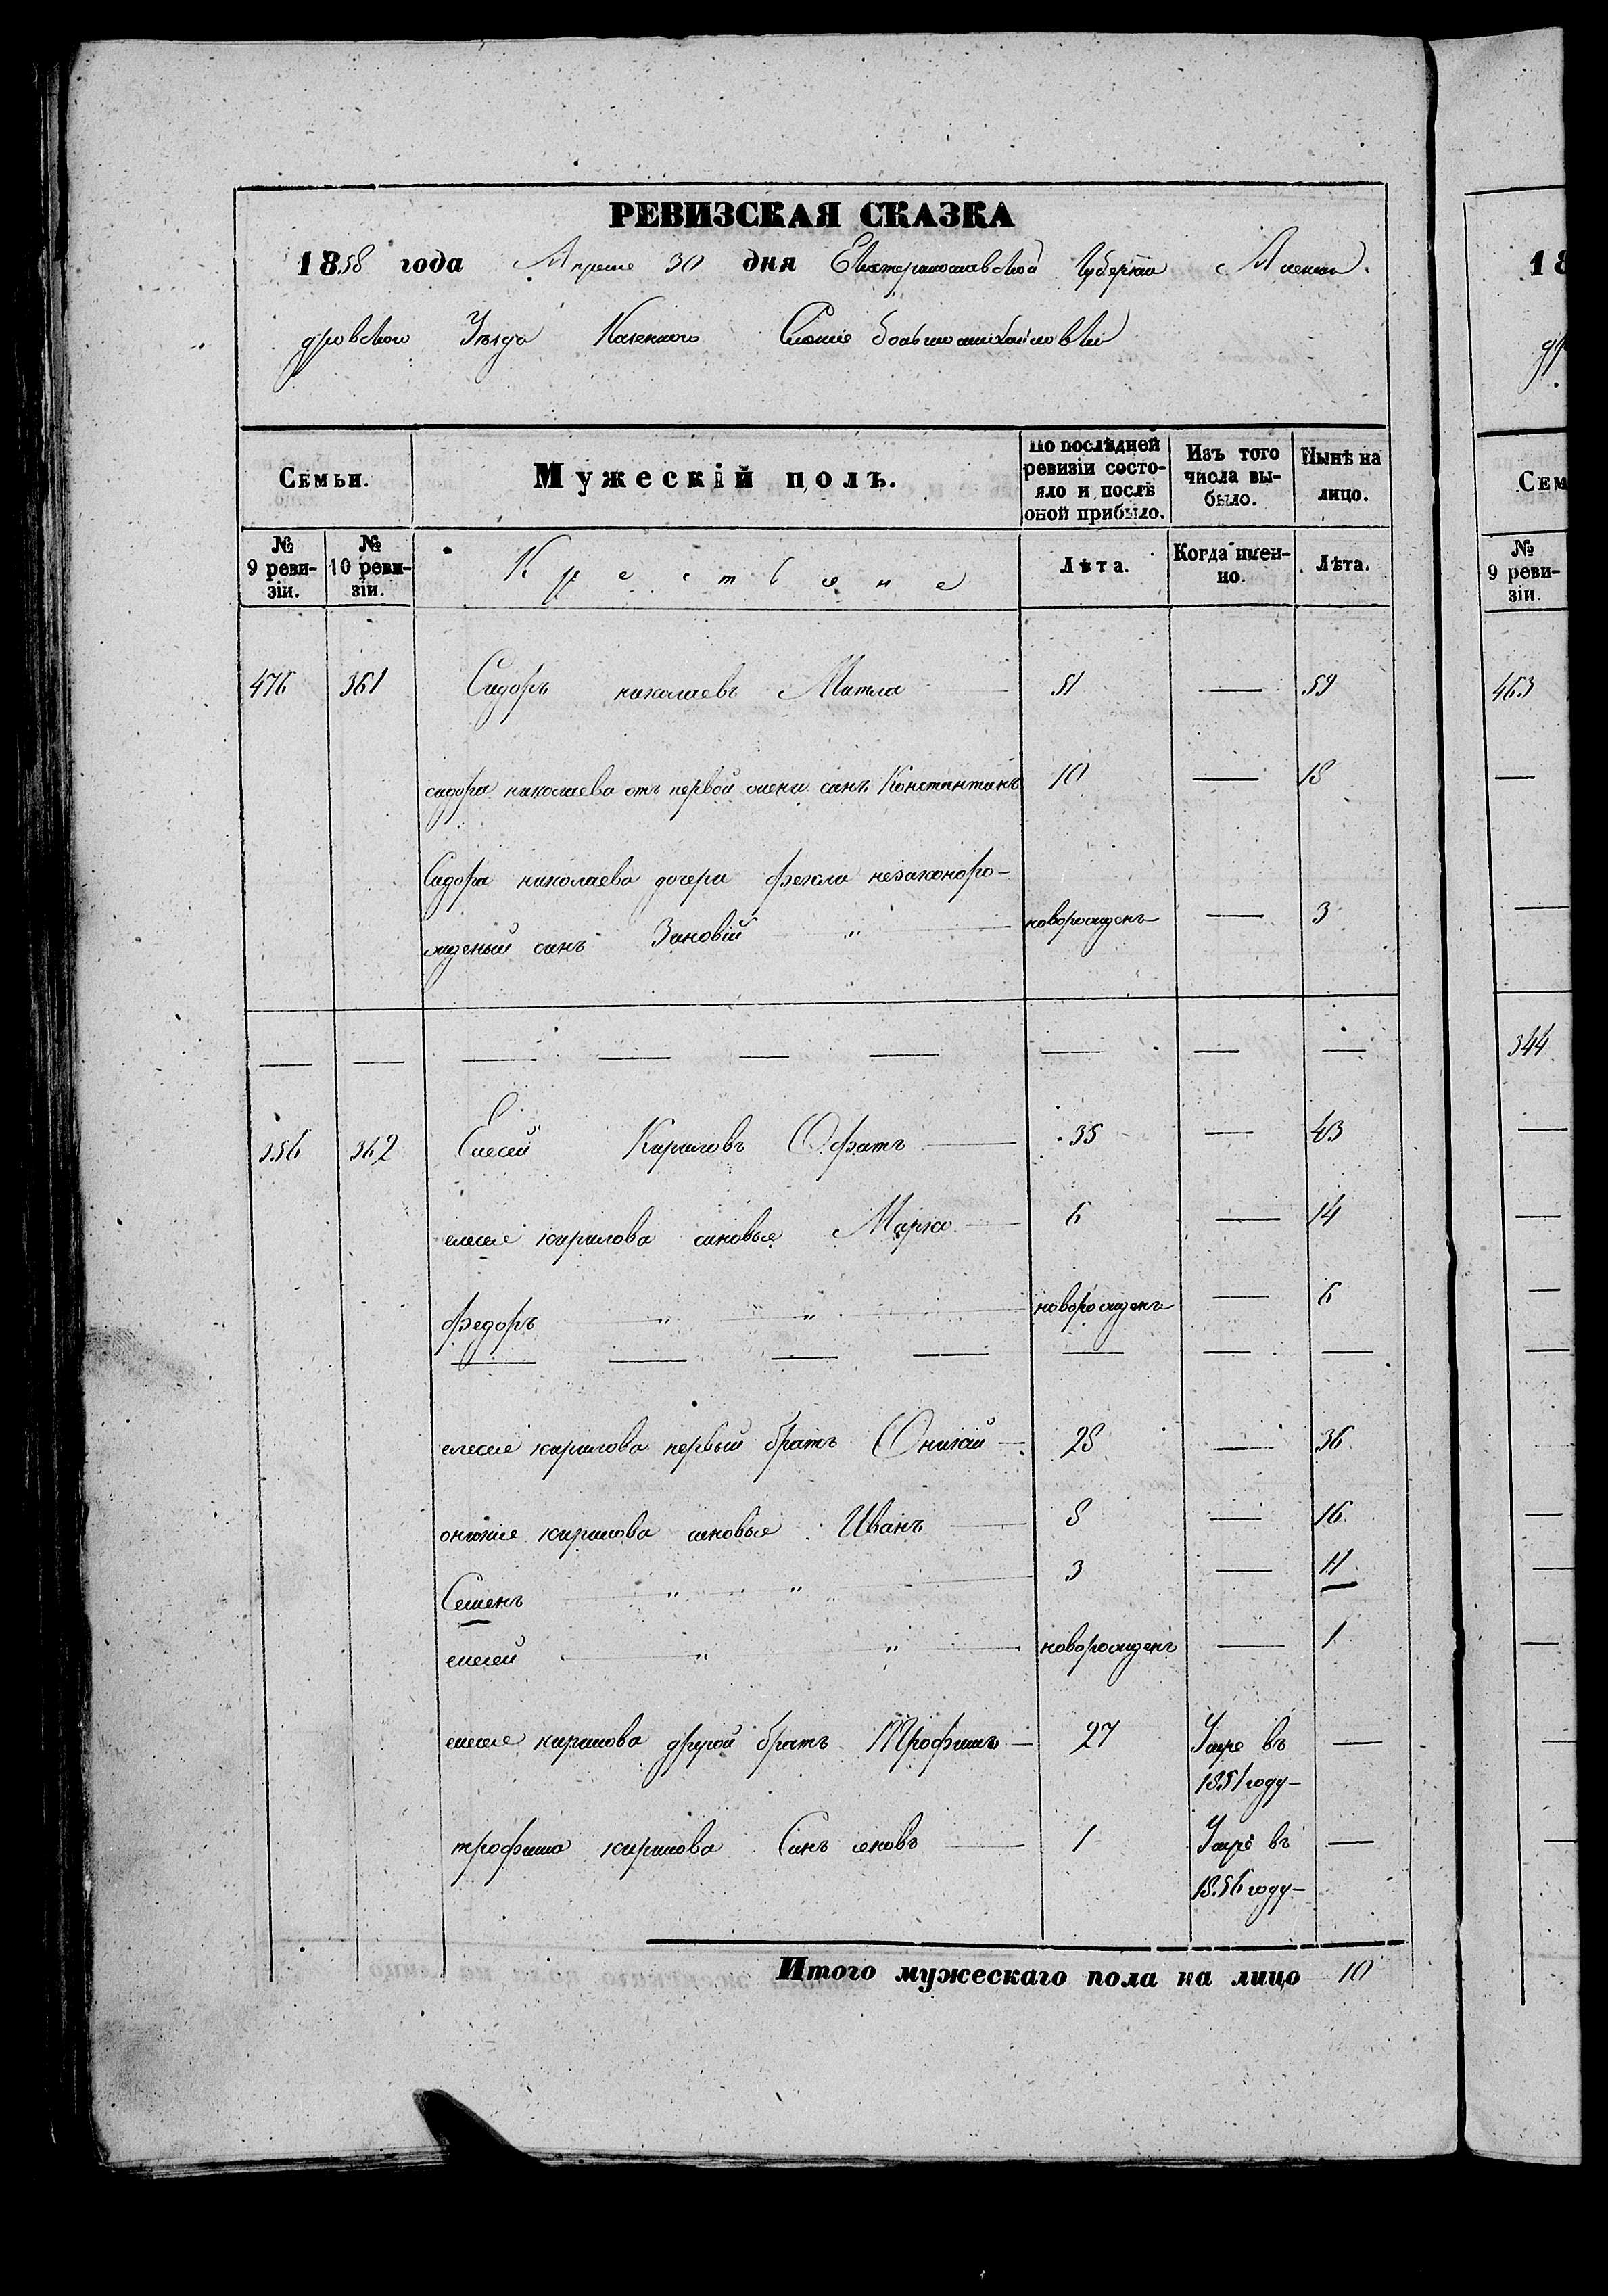 РЕВИЗСКАЯ СКАЗКА
1858 года Апреля 30 дня Екатеринославской Губерніи Алексан
дровского Уезда Казенного Селение большомихайловки
Семьи.
Мужескій полъ.
По послѣдней ревизіи состо-
яло и послѣ оной прибыло.
Изъ того числа вы-
было.
Нынѣ на лицо.
№ 9 реви-
зіи.
№ 10 реви-
зіи.
Крестьяне
Лѣта.
Когда имен-
но.
Лѣта.
476 361 Сидоръ николаевъ Митла 51 — 59
сидора николаева отъ первой жены синъ Константинъ 10 — 18
Сидора николаева дочери фекли незаконоро-
жденый синъ Зиновій " новорожденъ — 3
— — — — — — — — —
356 362 Елесей Кириловъ Офатъ 35 — 43
елесея кирилова синовья Марко 6 — 14
федоръ " " новорожденъ — 6
— — — — — — —
елесея кирилова первый братъ Оникій 28 — 36
оникия кирилова синовья Иванъ 8 — 16
Семенъ " " 3 — 11
елесей " " новорожденъ — 1
елесея кирилова другой братъ Трофимъ 27 Умре въ 1851 году —
трофима кирилова Синъ яковъ 1 Умре въ 1856 году —
Итого мужескаго пола на лицо 10
18
др
Сем
№
9 реви-
зіи.
463
344